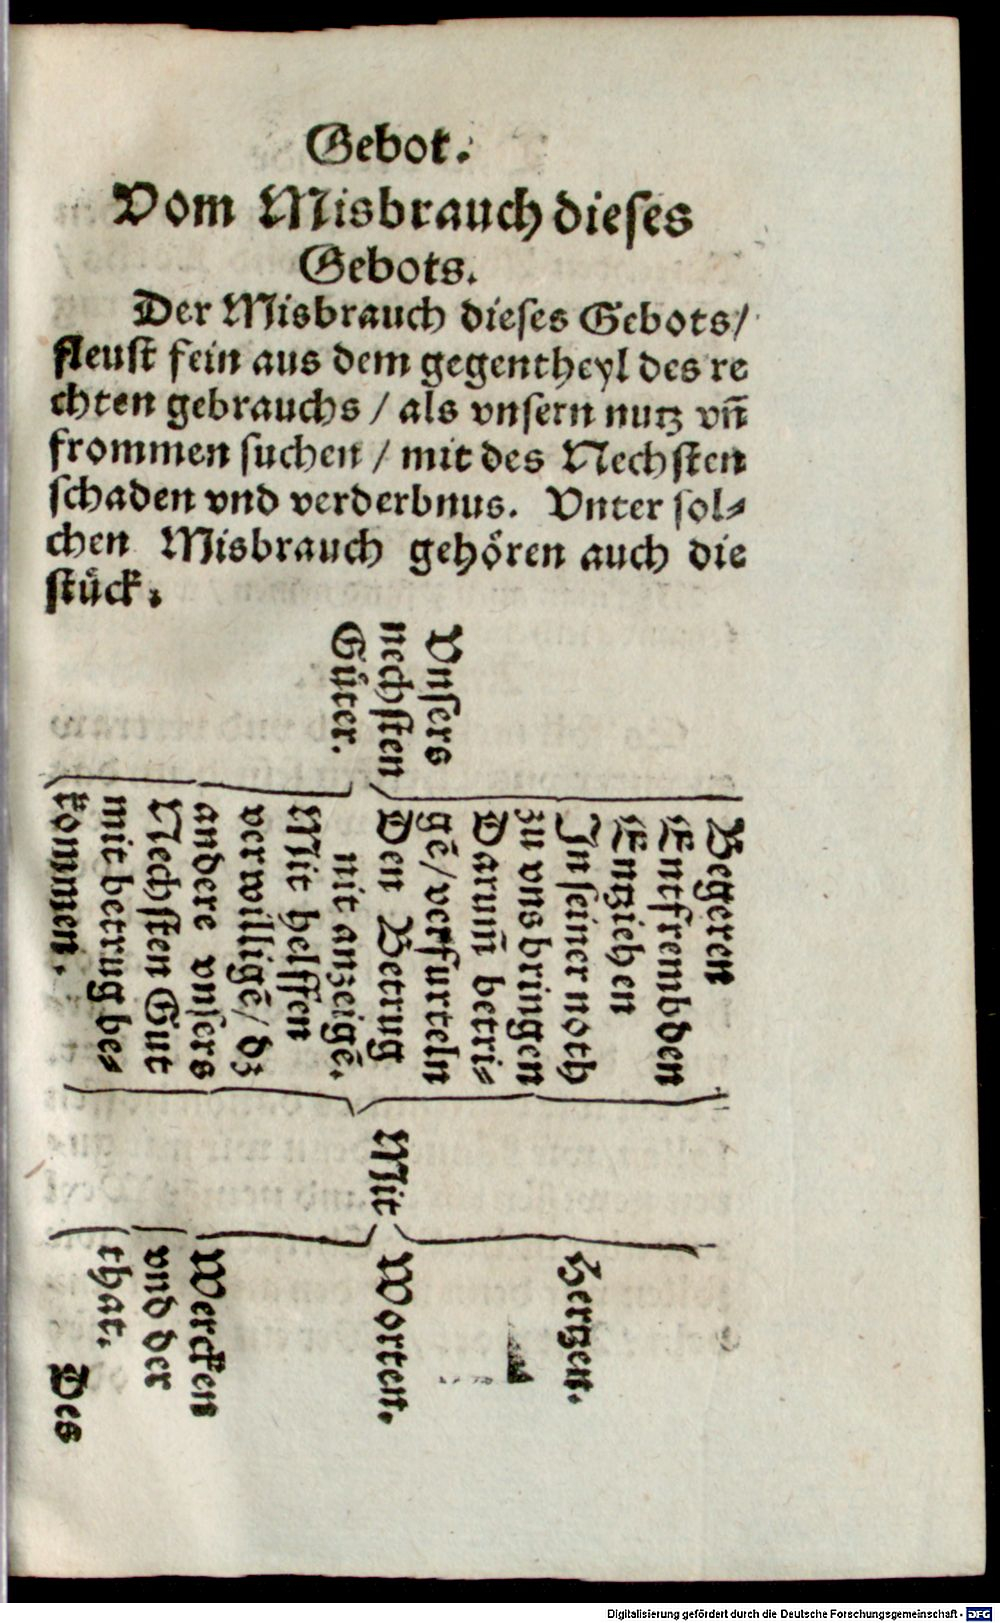 Gebot.
Vom Misbrauch dieses
Gebots.
Der Misbrauch dieses Gebots/
fleust fein aus dem gegentheyl des re
chten gebrauchs / als vnsern nutz vñ
frommen suchen / mit des Nechsten
schaden vnd verderbnus. Vnter sol⸗
chen Misbrauch gehören auch die
stück.
Vnsers
nechsten
Güter.
Begeren
Entfrembden
Entziehen
In seiner noth
zu vns bringen
Darum̃ betri⸗
gē/verfurteln
Den Betrug
mit anzeigē.
Mit helffen
verwilligē/ dz
andere vnsers
Nechsten Gut
mit betrug be⸗
kommen.
Mit
Hertzen.
Worten.
Wercken
vnd der
that.
Des
Digitalisierung gefördert durch die Deutsche Forschungsgemeinschaft - DFG